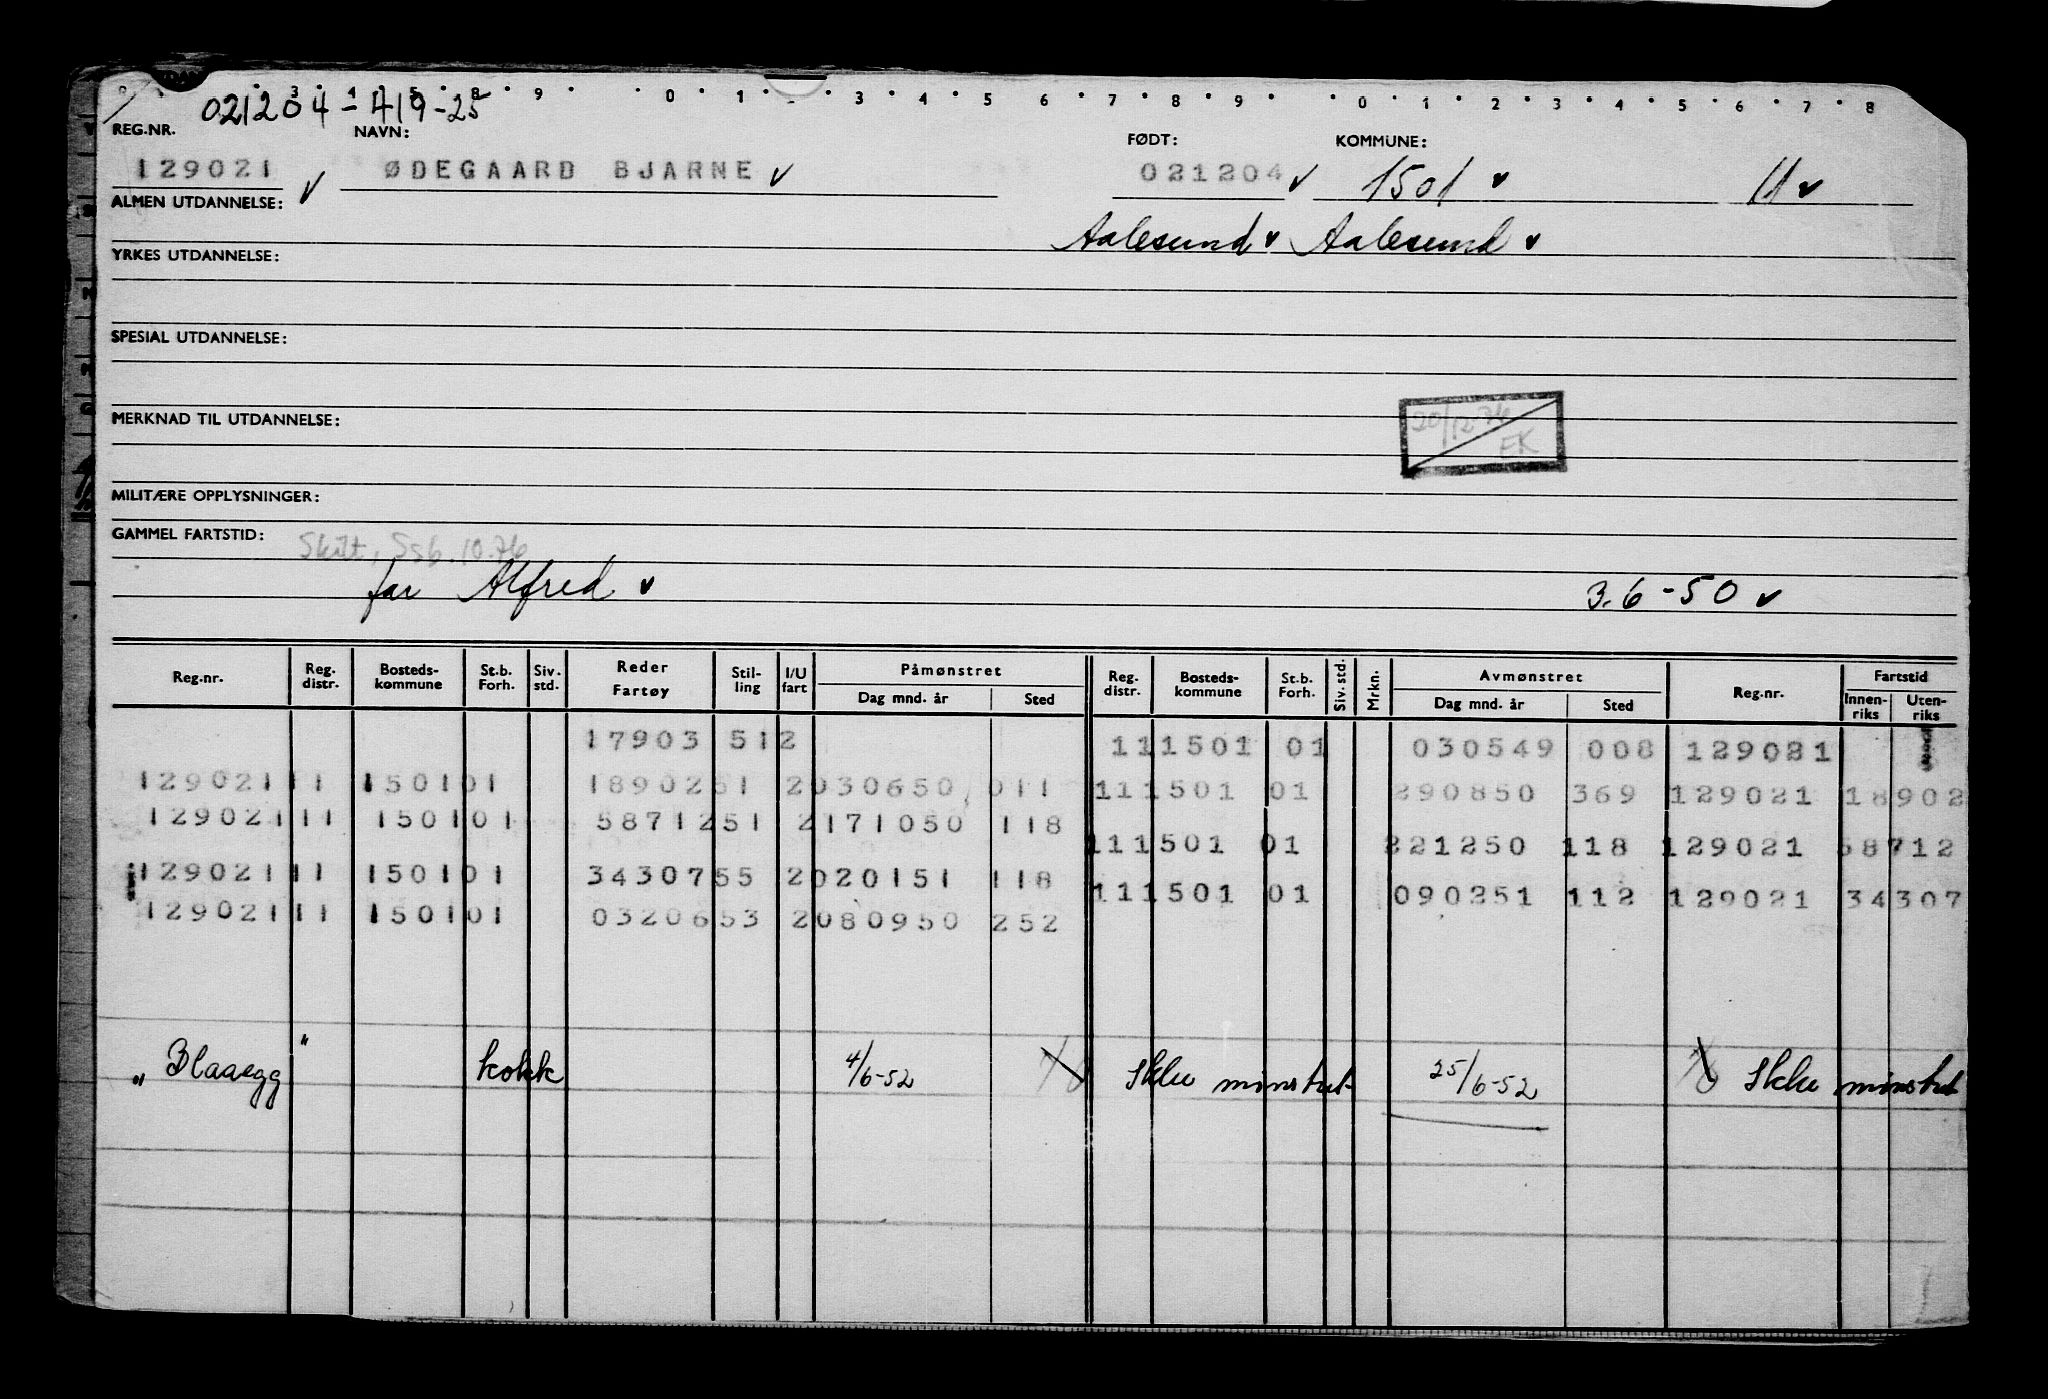 021204-419-25
3 4 5 8 9 0 1 3 4 5 6 7 8 9 0 1 2 3 4 5 6 7 8
REG.NR. NAVN: FØDT: KOMMUNE:
129021 ØDEGAARD BJARNE 021204 1501 11
ALMEN UTDANNELSE:
Aalesund Aalesund
YRKES UTDANNELSE:
SPESIAL UTDANNELSE:
20/12-76
MERKNAD TIL UTDANNELSE:
EK
MILITÆRE OPPLYSNINGER:
GAMMEL FARTSTID: 10.76
far Alfred 3-6-50
Reg.nr. Reg. distr. Bosteds-kommune St.b. Forh. Siv. std. Reder Fartøy Stil-ling I/U fart Påmønstret Dag mnd. år Sted Reg. distr. Bosteds-kommune St.b. Forh. Siv. std. Mrkn. Avmønstret Dag mnd. år Sted Reg.nr. Fartstid Innen-riks Uten-riks
17903 512 111501 01 030549 008 129021
129021 11 1501 01 18902 51 2 030650 011 111501 01 290850 369 129021 18902
129021 11 1501 01 58712 51 2 171050 118 111501 01 221250 118 129021 58712
129021 11 1501 01 34307 55 2 020151 118 111501 01 090251 112 129021 34307
129021 11 1501 01 03206 53 2 080950 252
„Blaaegg" kokk 4/6-52 Ikke mønstret 25/6-52 Ikke mønstret